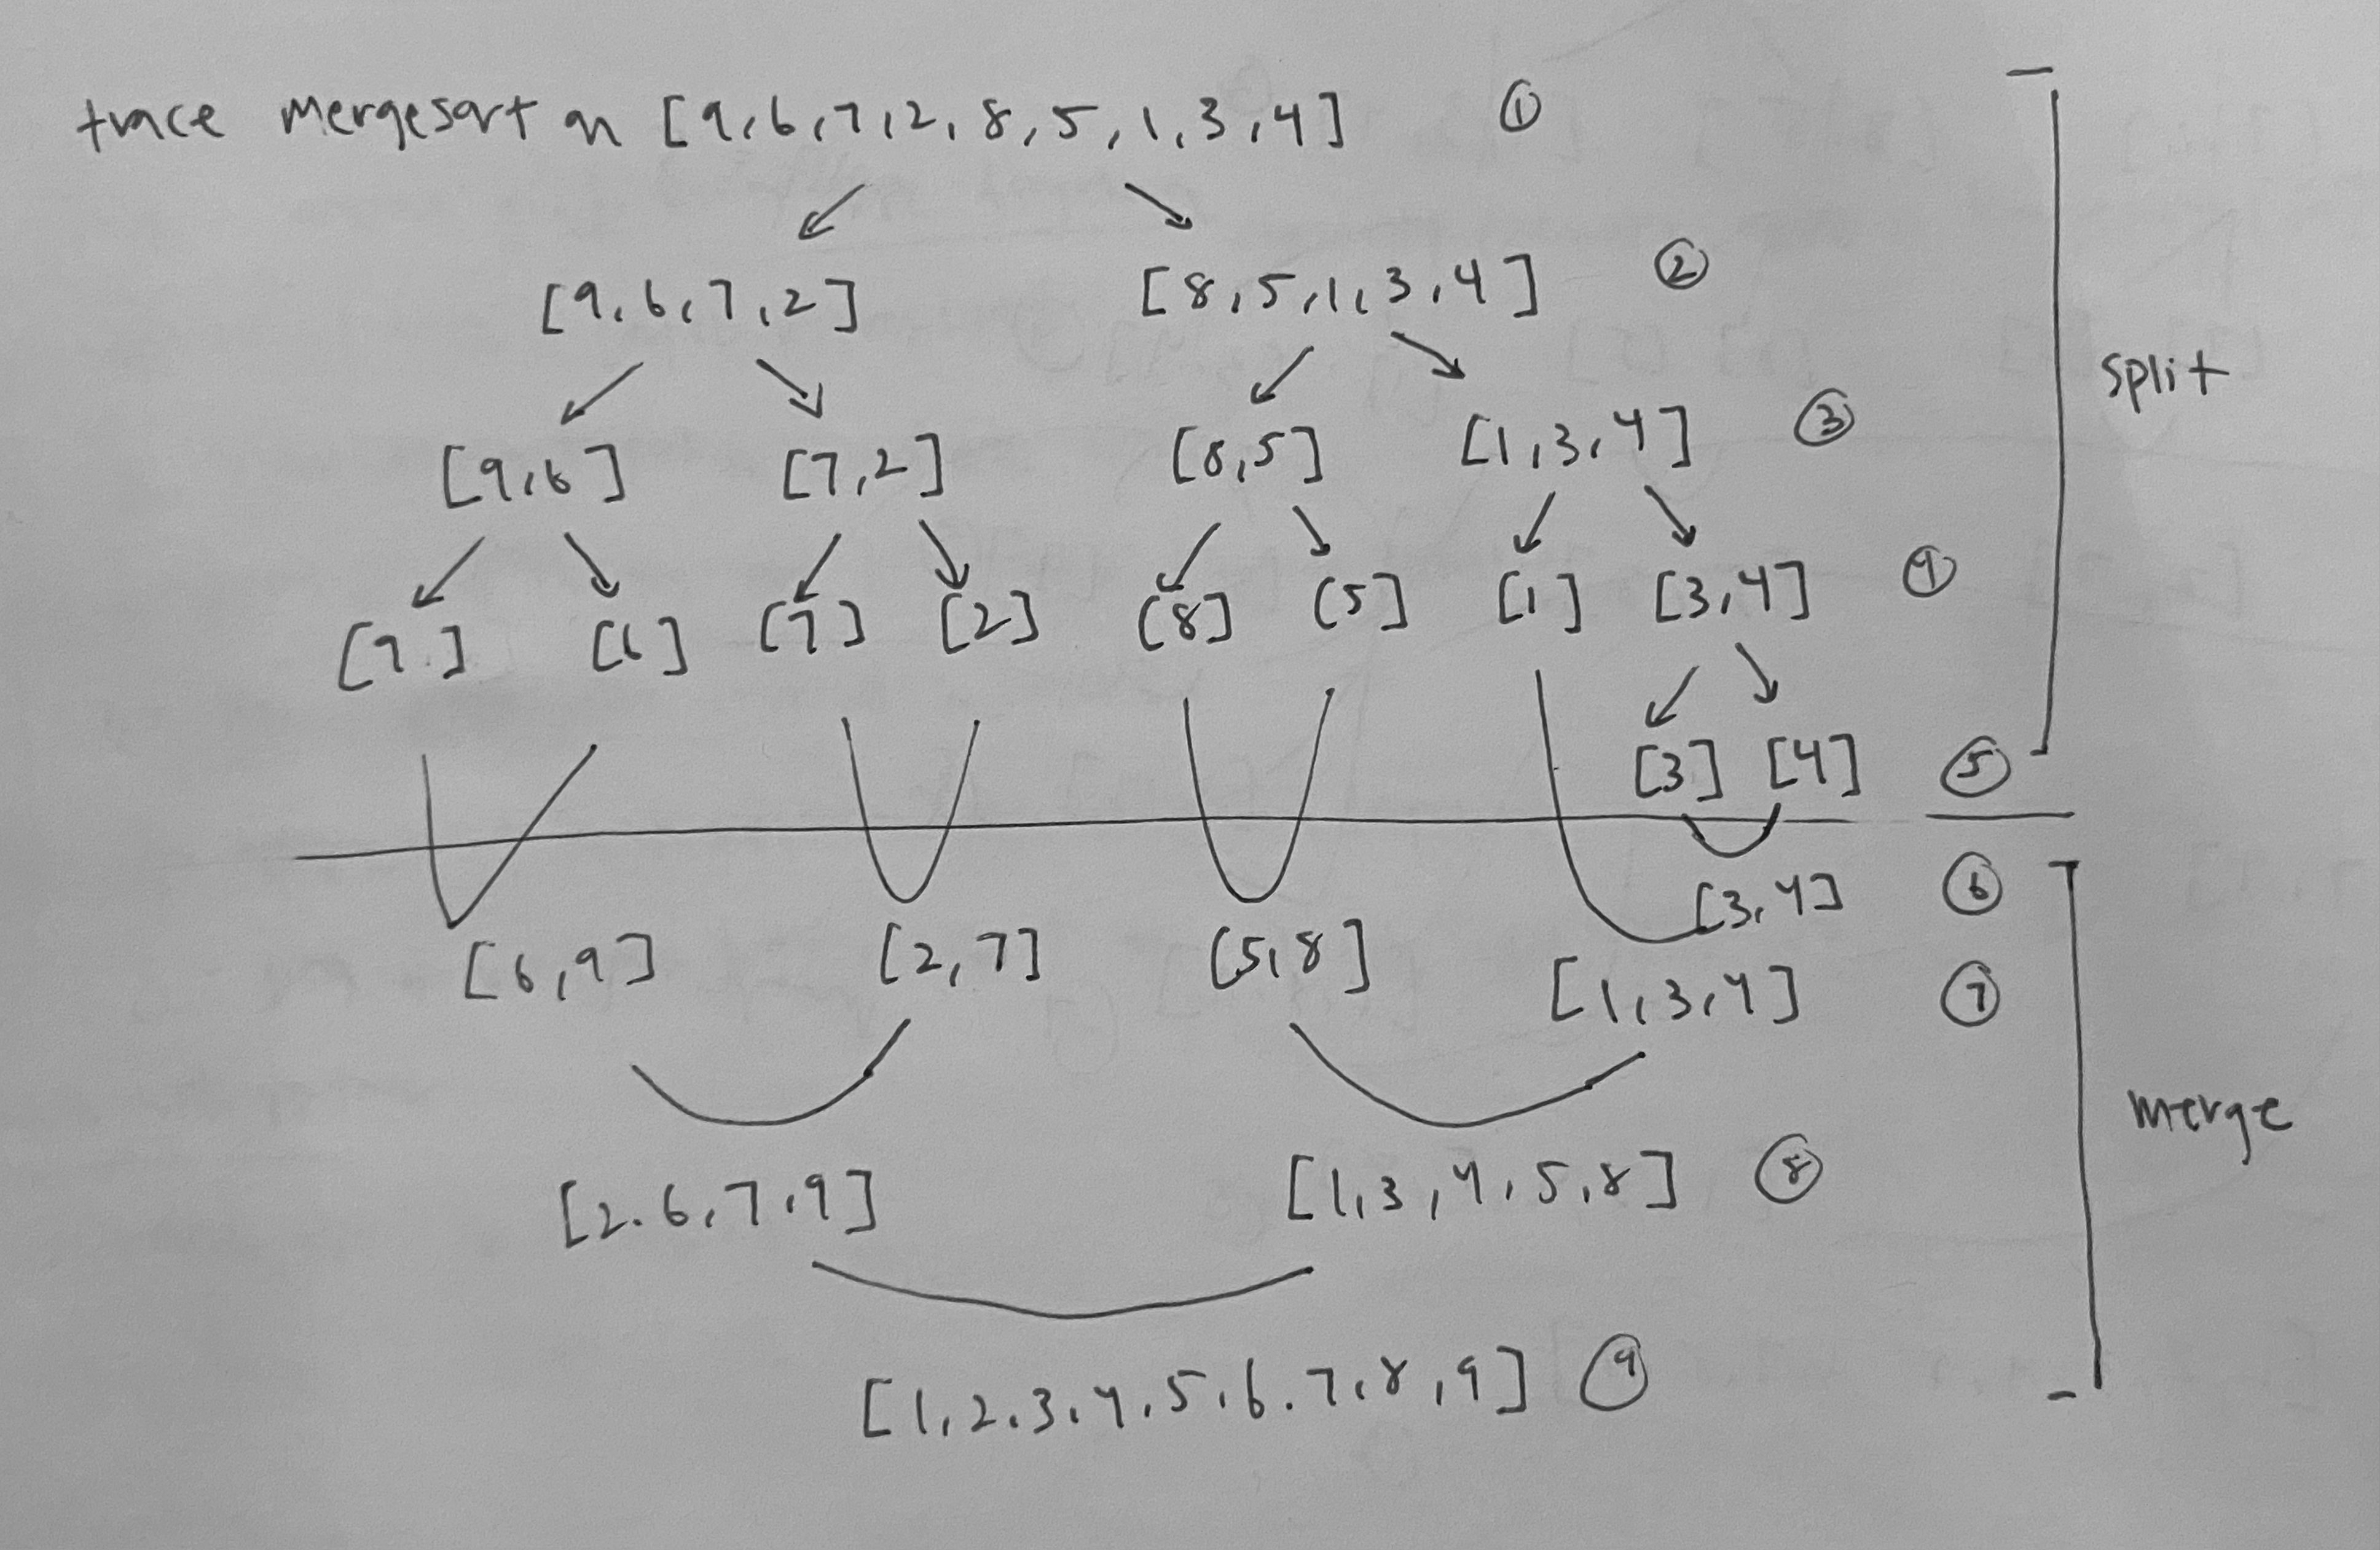 trace mergesort on [9,6,7,2,8,5,1,3,4] ①
[9,6,7,2] [8,5,1,3,4] ②
split
[9,6] [7,2] [8,5] [1,3,4] ③
[9] [6] [7] [2] [8] [5] [1] [3,4] ④
[3] [4] ⑤
[3,4] ⑥
[6,9] [2,7] [5,8] [1,3,4] ⑦
merge
[2.6,7,9] [1,3,4,5,8] ⑧
[1,2,3,4,5,6.7,8,9] ⑨